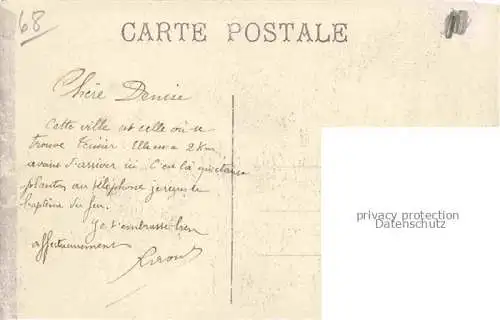 68
CARTE POSTALE
Chère Denise
Cette ville est celle où se
trouve 2 Km
avant d'arriver ici. C'est là
plantes au téléphone je reçus le
baptême du feu.
Je t'embrasse bien
affectueusement
privacy protection
Datenschutz